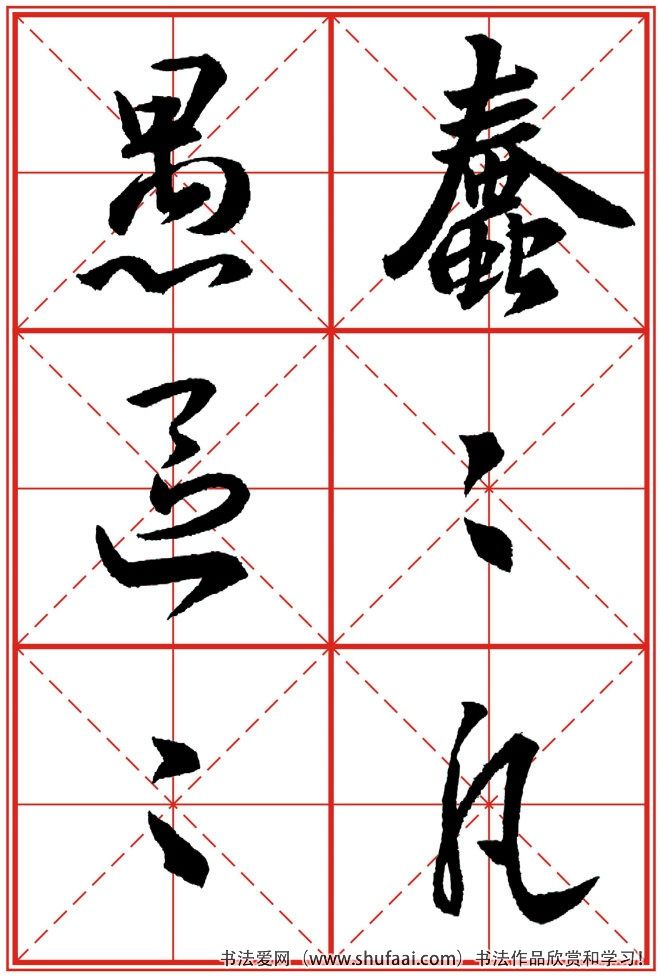 蠢〻凡
愚區〻
书法爱网（www.shufaai.com）书法作品欣赏和学习！